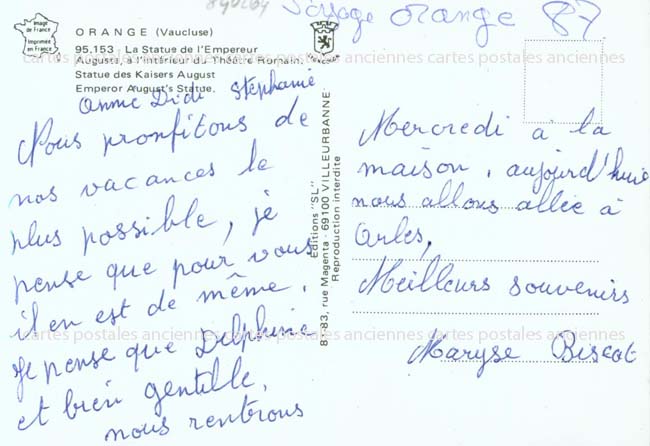 Voyage orange 87
Image
de France
Imprimée
en France
ORANGE (Vaucluse)
95.153 - La Statue de l'Empereur
Auguste, à l'intérieur du Théâtre Romain.
Statue des Kaisers August
Emperor August's Statue.
cartes postales anciennes cartes postales anciennes cartes postales anciennes
Annie Didi Stephanie
Nous pronfitons de
nos vacances le
plus possible, je
pense que pour vous
il en est de même.
Je pense que Delphine
et bien gentille,
nous rentrons
Editions "SL"
81-83, rue Magenta - 69100 VILLEURBANNE
Reproduction interdite
Mercredi à la
maison, aujourd'huie
nous allons allée à
Orles,
Meilleurs souvenirs
Maryse Biscot
cartes postales anciennes cartes postales anciennes cartes postales anciennes